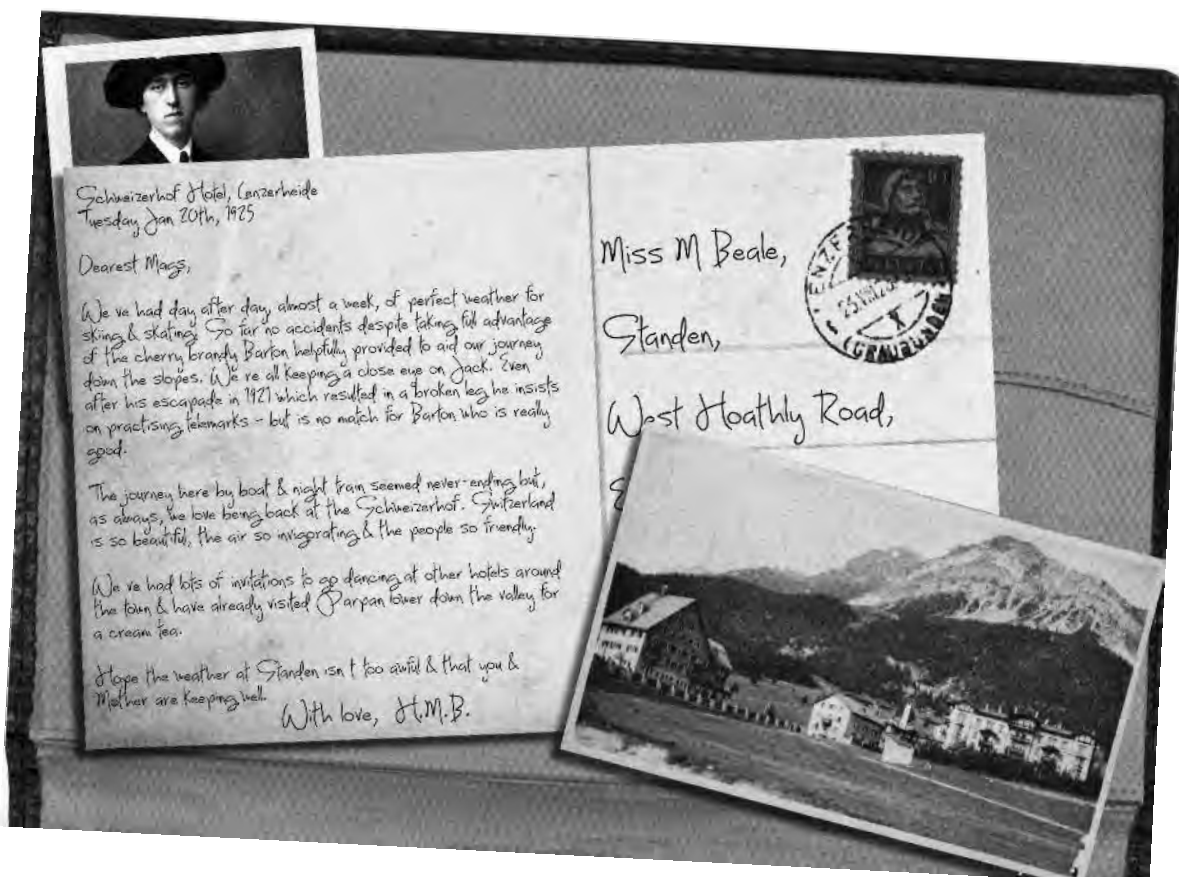 Schweizerhof Hotel, Lenzerheide
Tuesday Jan 20th, 1925
Dearest Mags,
We ve had day after day, almost a week, of perfect weather for
skiing & skating. So far no accidents despite taking full advantage
of the cherry brandy Barton helpfully provided to aid our journey
down the slopes. We re all keeping a close eye on Jack. Even
after his escapade in 1921 which resulted in a broken leg he insists
on practising telemarks - but is no match for Barton who is really
good.
The journey here by boat & night train seemed never-ending but,
as always, we love being back at the Schweizerhof. Switzerland
is so beautiful, the air so invigorating & the people so friendly.
We ve had lots of invitations to go dancing at other hotels around
the town & have already visited Parpan lower down the valley for
a cream tea.
Hope the weather at Standen isn t too awful & that you &
Mother are keeping well.
With love, H.M.B.
Miss M Beale,
Standen,
West Hoathly Road,
(GRAUBÜNDEN)